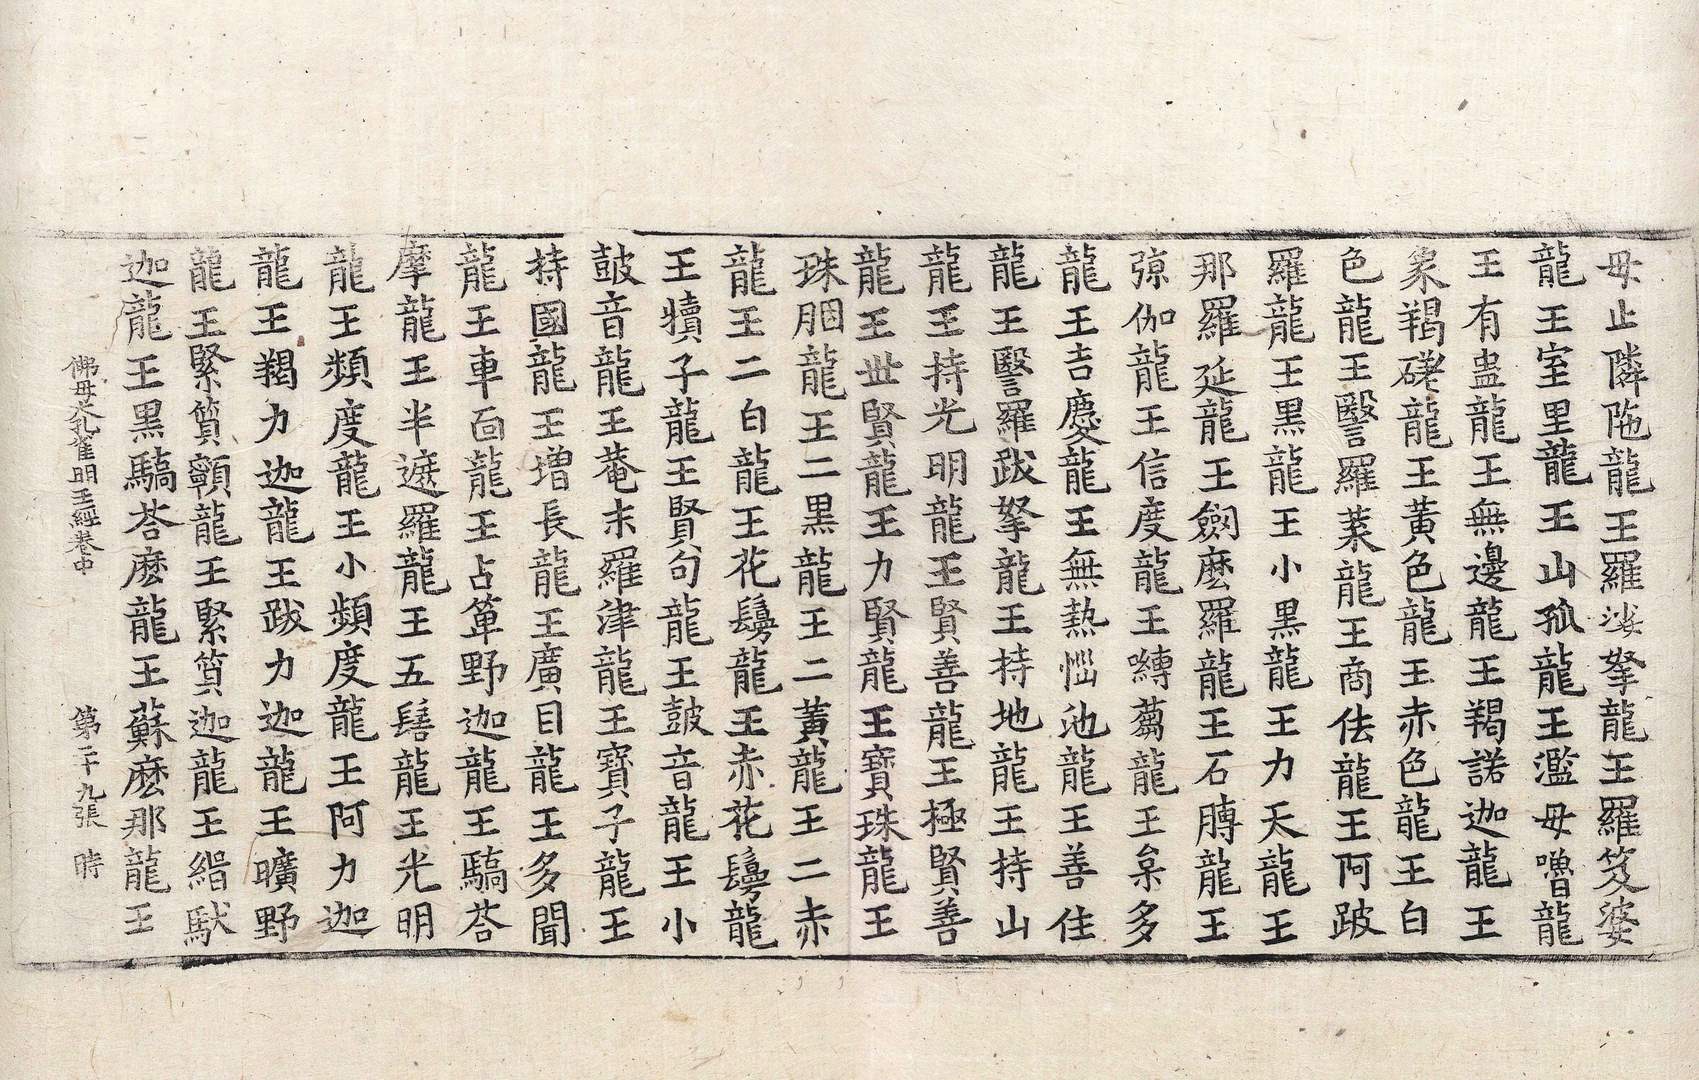 母止隣陁龍王羅涹拏龍王羅笈婆
龍王室里龍王山孤龍王濫母嚕龍
王有蛊龍王無邊龍王羯諾迦龍王
象羯磋龍王黃色龍王赤色龍王白
色龍王瑿羅葉龍王商佉龍王阿跛
羅龍王黑龍王小黑龍王力天龍王
那羅延龍王劔麽羅龍王石膊龍王
弶伽龍王信度龍王嚩蒭龍王枲多
龍王吉慶龍王無熱惱池龍王善住
龍王瑿羅跋拏龍王持地龍王持山
龍王持光明龍王賢善龍王極賢善
龍王世賢龍王力賢龍王寶珠龍王
珠胭龍王二黑龍王二黃龍王二赤
龍王二白龍王花鬘龍王赤花鬘龍
王犢子龍王賢句龍王鼓音龍王小
鼓音龍王菴末羅津龍王寶子龍王
持國龍王增長龍王廣目龍王多聞
龍王車面龍王占箄野迦龍王驕荅
摩龍王半遮羅龍王五髻龍王光明
龍王頻度龍王小頻度龍王阿力迦
龍王羯力迦龍王跋力迦龍王曠野
龍王緊質顊龍王緊質迦龍王緇馱
迦龍王黑驕荅麽龍王蘇麽那龍王
佛母大孔雀明王經卷中　第二十九張　時